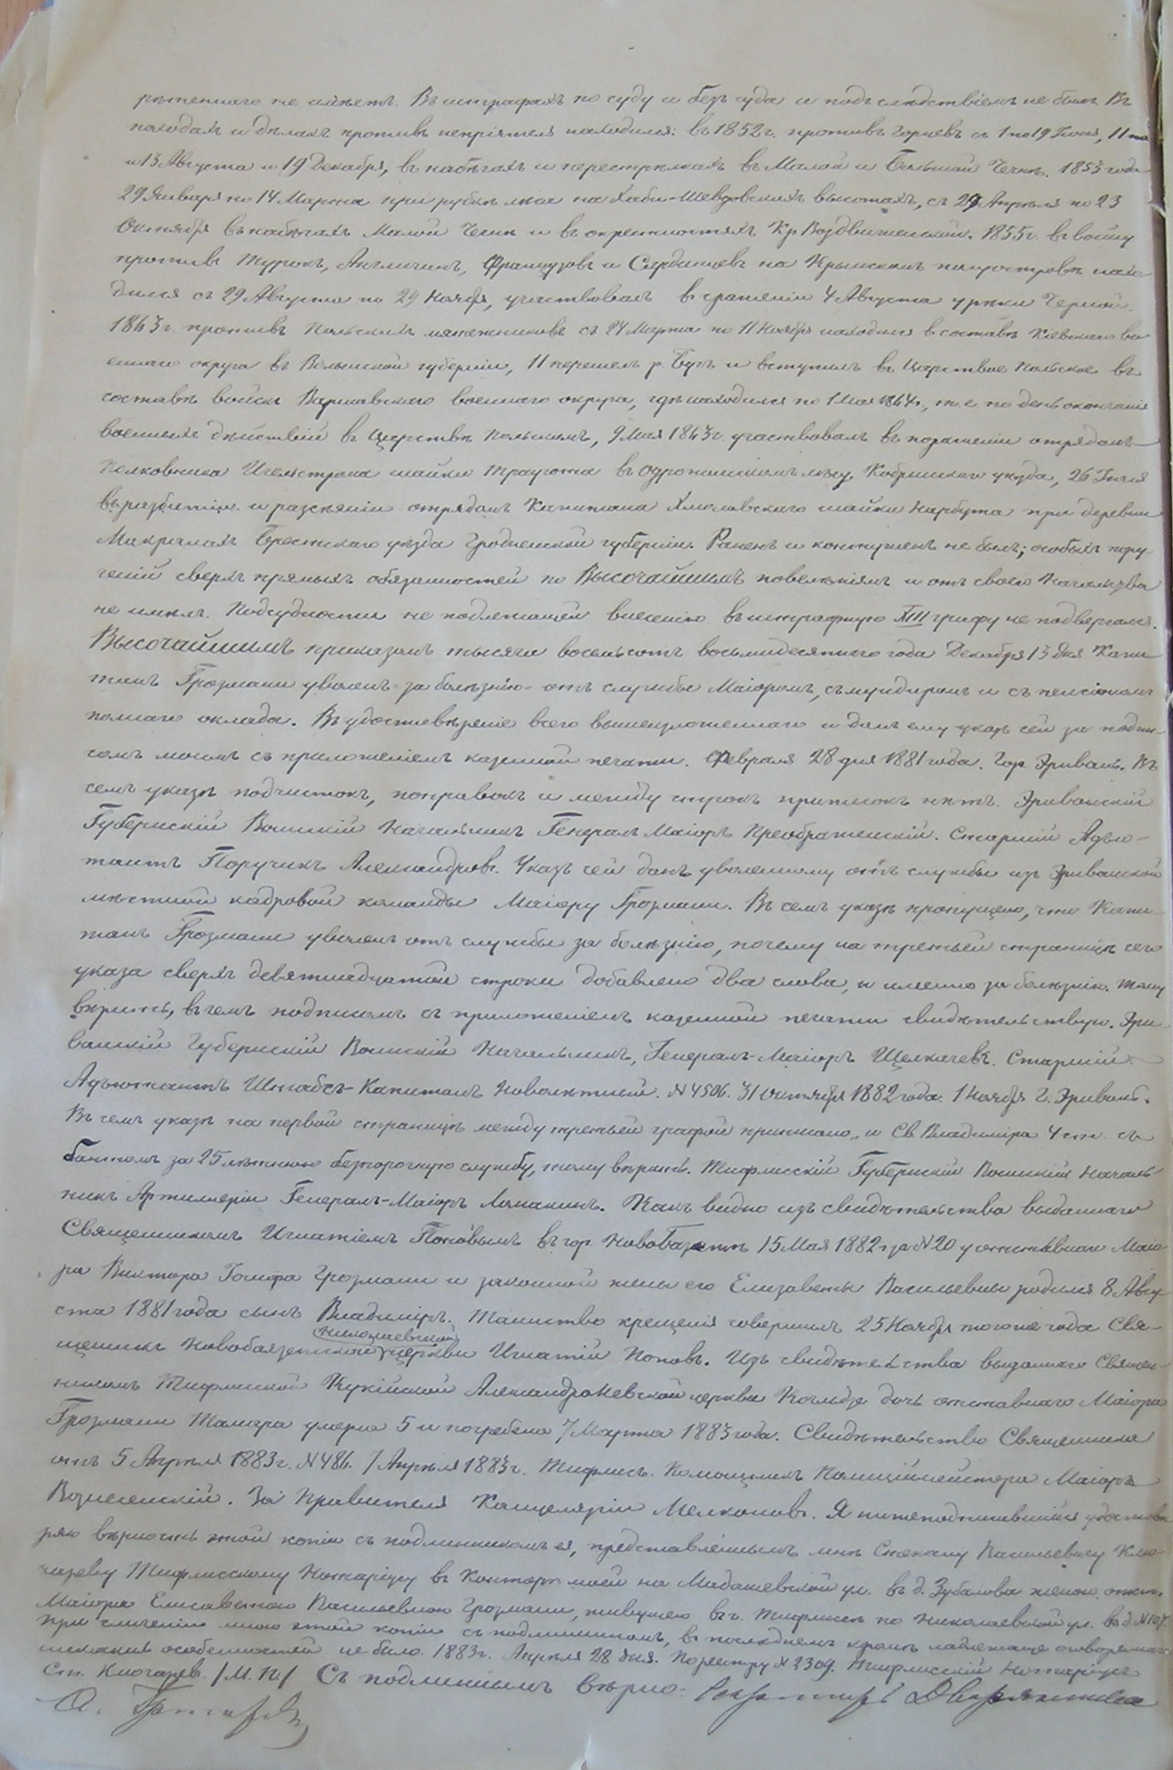 рженнаго не имѣетъ. Въ штрафахъ по суду и безъ суда и подъ слѣдствіемъ не былъ. Въ
походахъ и дѣлахъ противъ непріятеля находился: въ 1852 г. противъ Горцевъ съ 1 по 19 Іюня, 11 по
и 13 Августа и 19 Декабря, въ набѣгахъ и перестрѣлкахъ въ Малой и Большой Чечнѣ. 1853 года
29 Января по 14 Марта при рубкѣ лѣса на Хаби-Шевдонскихъ высотахъ, съ 29 Апрѣля по 23
Октября въ набѣгахъ Малой Чечни и въ окрестностяхъ Кр. Воздвиженской. 1855 г. въ войну
противъ Турокъ, Англичанъ, Французовъ и Сардинцевъ на Крымскомъ полуостровѣ нахо-
дился съ 29 Августа по 29 Ноября, участвовалъ въ сраженіи 4 Августа у рѣки Черной.
1863 г. противъ Польскихъ мятежниковъ съ 24 Марта по 11 Ноября находился въ составѣ Кіевскаго во
еннаго округа въ Волынской губерніи, 11 перешелъ р. Бугъ и вступилъ въ Царство Польское въ
составѣ войскъ Варшавскаго военнаго округа, гдѣ находился по 1 Мая 1864 г., т. е. по день окончанія
военныхъ дѣйствій въ Царствѣ Польскомъ, 9 Мая 1863 г. участвовалъ въ пораженіи отрядомъ
Полковника Игельстрома шайки Траугута въ лѣсу, Кобринскаго уѣзда, 26 Іюля
въ разбитіи и разсѣяніи отрядомъ Капитана шайки Нарбута при деревни
Брестскаго уѣзда Гродненской губерніи. Раненъ и контуженъ не былъ; особыхъ пору-
ченій сверхъ прямыхъ обязанностей по Высочайшимъ повелѣніямъ и отъ своего Начальства
не имѣлъ. Подсудности не подлежащей внесенію въ штрафную XIII графу не подвергался.
Высочайшимъ приказомъ тысяча восемьсотъ восьмидесятаго года Декабря 13 дня Капи
танъ Грозманн уволенъ за болѣзнію отъ службы Маіоромъ, съ мундиромъ и съ пенсіономъ
полнаго оклада. Въ удостовѣреніе всего вышеизложеннаго и данъ ему указъ сей за подпи-
сомъ моимъ съ приложеніемъ казенной печати. Февраля 28 дня 1881 года. Гор. Эривань. Въ
семъ указѣ подчистокъ, поправокъ и между строкъ приписокъ нѣтъ. Эриванскій
Губернскій Воинскій Начальникъ Генералъ Маіоръ Преображенскій. Старшій Адъю-
тантъ Поручикъ Александровъ. Указъ сей данъ уволенному отъ службы изъ Эриванской
мѣстной кадровой команды Маіору Грозманн. Въ семъ указѣ пропущено, что Капи-
танъ Грозманн уволенъ отъ службы за болѣзнію, почему на третьей страницѣ сего
указа сверхъ девятнадцатой строки добавлено два слова, и именно за болѣзнію. Тому
вѣрить, въ чемъ подписомъ съ приложеніемъ казенной печати свидѣтельствую. Эри
ванскій Губернскій Воинскій Начальникъ, Генералъ-Маіоръ Щелкачевъ. Старшій
Адъютантъ Штабсъ-Капитанъ. N 4506. 31 Октября 1882 года. 1 Ноября Г. Эривань.
Въ семъ указѣ на первой страницѣ между третьей графой приписано „и Св. Владиміра 4 ст. съ
бантомъ за 25 лѣтнюю безпорочную службу, тому вѣрить. Тифлисскій Губернскій Воинскій Началь
никъ Артиллеріи Генералъ-Маіоръ. Какъ видно изъ свидѣтельства выданнаго
Священникомъ Игнатіемъ Поповымъ въ гор. Новобаязетѣ 15 Мая 1882 г. за N 20 у отставнаго Маіо
ра Виктора Іосифа Грозманн и законной жены его Елизаветы Васильевны родился 8 Авгу-
ста 1881 года сынъ Владиміръ. Таинство крещенія совершилъ 25 Ноября того же года Свя-
Николаевской
щенникъ Новобаязетской церкви Игнатій Поповъ. Изъ свидѣтельства выданнаго Священ-
никомъ Тифлисской Кукійской Александроневской церкви дочь отставнаго Маіора
Грозманн Тамара умерла 5 и погребена 7 Марта 1883 года. Свидѣтельство Священника
отъ 5 Апрѣля 1883 г. N 486. 7 Апрѣля 1883 г. Тифлисъ. Помощникъ Полиціймейстера Маіоръ
Вознесенскій. За Правителя Канцеляріи Мелконовъ. Я нижеподписавшійся удостовѣ
ряю вѣрность этой копіи съ подлинникомъ ея, представленнымъ мнѣ Степану Васильевичу Клю-
чареву Тифлисскому Нотаріусу въ Конторѣ моей на ул. въ д. Зубалова женою отст.
Маіора Елисаветою Васильевною Грозманн, живущею въ г. Тифлисѣ по Николаевской ул. въ д. N 107.
При сличеніи мною этой копіи съ подлинникомъ, въ послѣднемъ кромѣ надлежаще оговоренной
особенностей не было. 1883 г. Апрѣля 28 дня. По реестру N 2309. Тифлисскій Нотаріусъ
Ст. Ключаревъ /М. П./ Съ подлиннымъ вѣрно: Секретарь Дворянства